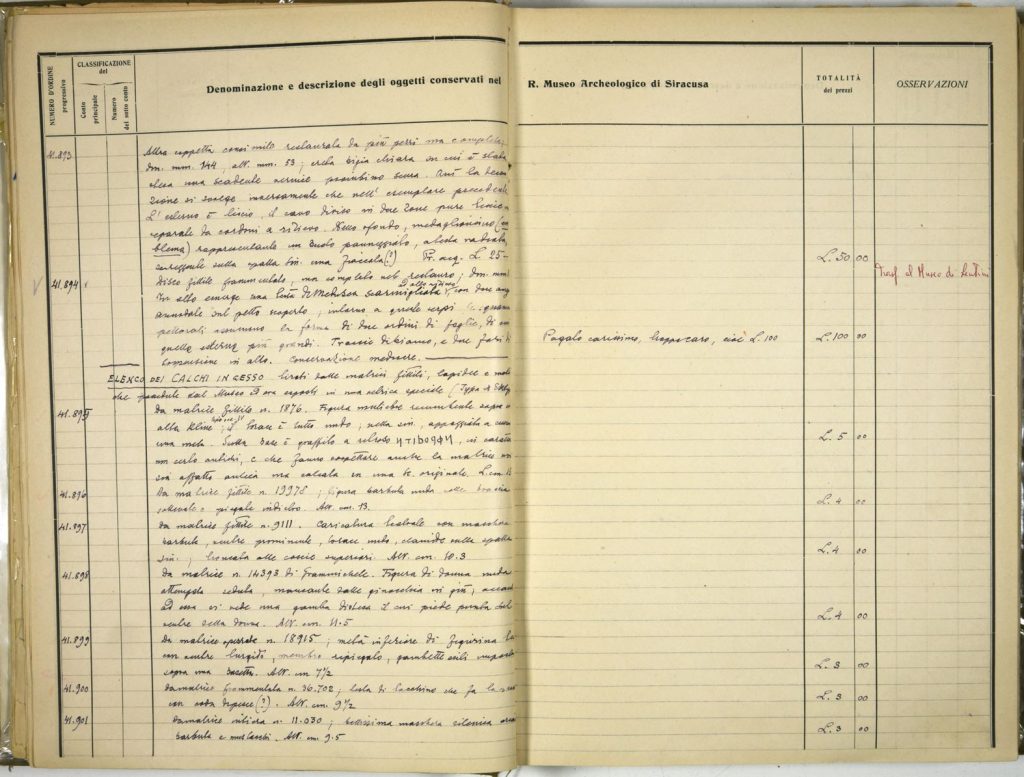 NUMERO D'ORDINE
progressivo
CLASSIFICAZIONE
del
Conto
principale
Numero
del sotto conto
Denominazione e descrizione degli oggetti conservati nel R. Museo Archeologico di Siracusa
TOTALITÀ
dei prezzi
OSSERVAZIONI
41.893 Altra coppetta consimile restaurata da più pezzi ma completa;
dm. mm. 144, alt. mm. 53; creta bigia chiara su cui è stata
stesa una scadente vernice piombino scura. Qui la decora
zione si svolge inversamente che nell' esemplare precedente.
L' esterno è liscio, il cavo diviso in due zone pure liscie e
separate da cordoni a rilievo. Nello sfondo, medaglioncino (em
blema) rappresentante un busto panneggiato, a testa radiata,
sulla spalla sin. una fiaccola (?) Pr. acq. L. 25- L. 50 00
V 41.894 Disco fittile frammentato, ma completo nel restauro; dm. mm.
In alto emerge una testa di Medusa scarmigliata con due
annodate sul petto scoperto; intorno a
pettorali assumono la forma di due ordini di foglie, di cui
quelle esterne più grandi. Traccie di bianco, e due fori di
in alto. Conservazione mediocre. Pagato carissimo, troppo caro, cioè L. 100 L. 100 00
Trasf. al Museo di Lentini
ELENCO DEI CALCHI IN GESSO tirati dalle matrici fittili, lapidee e metal
che possedute dal Museo ed ora esposti in una vetrina speciale
41.895 Da matrice fittile n. 1876. Figura muliebre recumbente sopra
alta kline; il torace è tutto nudo; nella sin. appoggiata a
una mela. Sulla base è graffito a ritroso in caratteri
non certo antichi, e che fanno sospettare anche la matrice
sia affatto antica ma calcata su una tc. originale. L. 5 00
41.896 Da matrice fittile n. 19978; figura barbuta nuda colle braccia
e piegate indietro. Alt. cm. 13. L. 4 00
41.897 Da matrice fittile n. 9111. Caricatura teatrale con maschera
barbuta, ventre prominente, torace nudo, clamide sulla spalla
sin.; troncata alle coscie superiori. Alt. cm. 10.3 L. 4 00
41.898 Da matrice n. 14393 di Grammichele. Figura di donna nuda
seduta, mancante dalle ginocchia in giù; accanto
ad essa si vede una gamba distesa il cui piede punta sul
ventre della donna. Alt. cm. 11.5 L. 4 00
41.899 Da matrice n. 18915; metà inferiore di figurina
con ventre turgido, membro ripiegato, gambette esili
sopra una basetta. Alt. cm 7½ L. 3 00
41.900 Da matrice frammentata n. 36.702; testa di che fa la
con (?). Alt. cm. 9½ L. 3 00
41.901 Da matrice intiera n. 11.030; bellissima maschera silenica
barbuta e Alt. cm. 9.5 L. 3 00